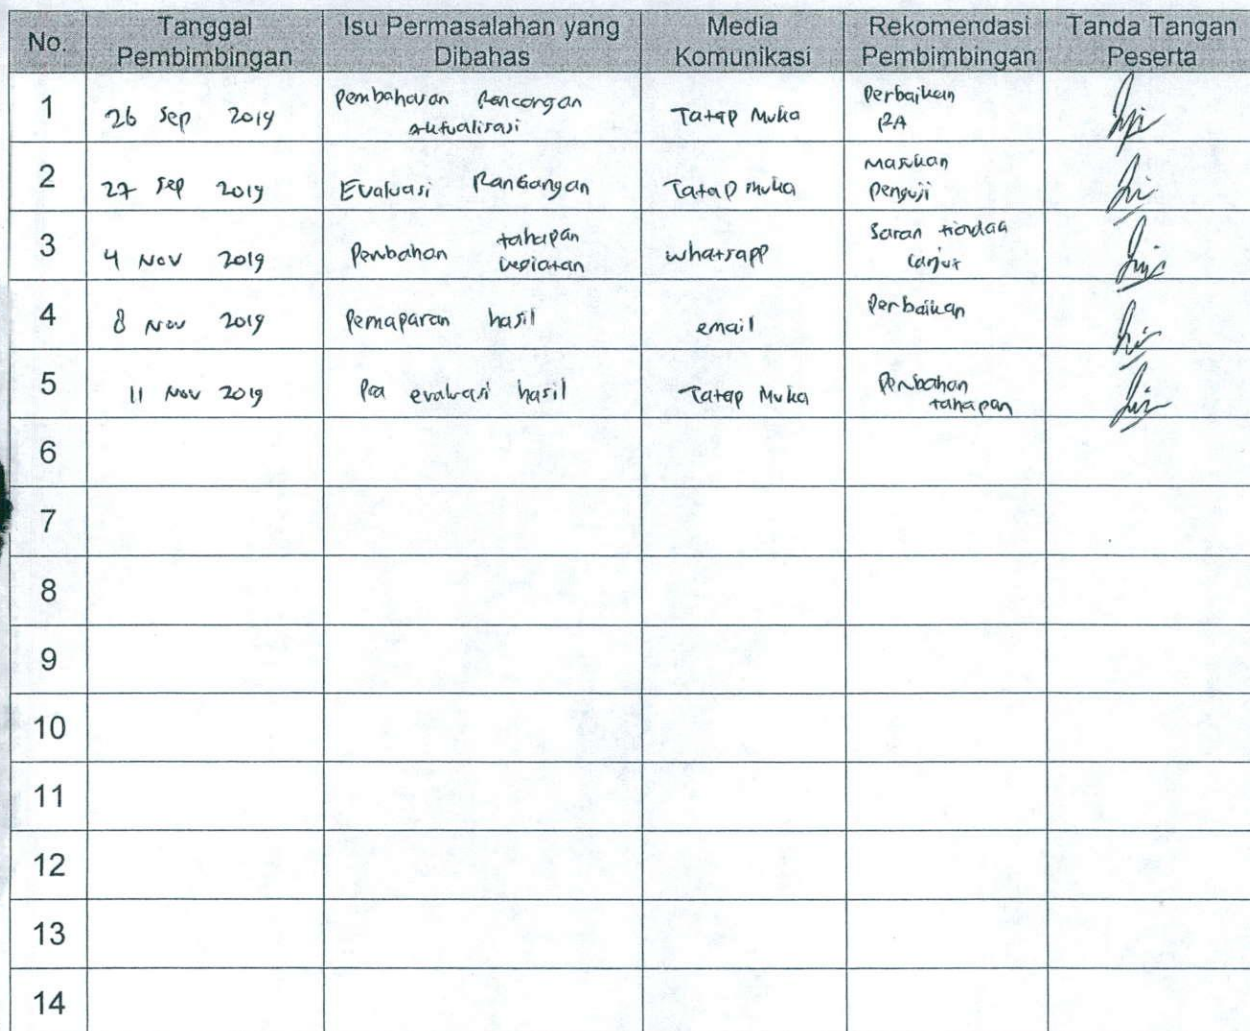 No. Tanggal Pembimbingan Isu Permasalahan yang Dibahas Media Komunikasi Rekomendasi Pembimbingan Tanda Tangan Peserta
1 26 Sep 2019 Pembahasan Rancangan Aktualisasi Tatap Muka Perbaikan RA
2 27 Sep 2019 Evaluasi Rancangan Tatap muka Masukan Penguji
3 4 Nov 2019 Perubahan tahapan kegiatan whatsapp Saran tindak lanjut
4 8 Nov 2019 Pemaparan hasil email Perbaikan
5 11 Nov 2019 Pra evaluasi hasil Tatap Muka Perubahan tahapan
6
7
8
9
10
11
12
13
14